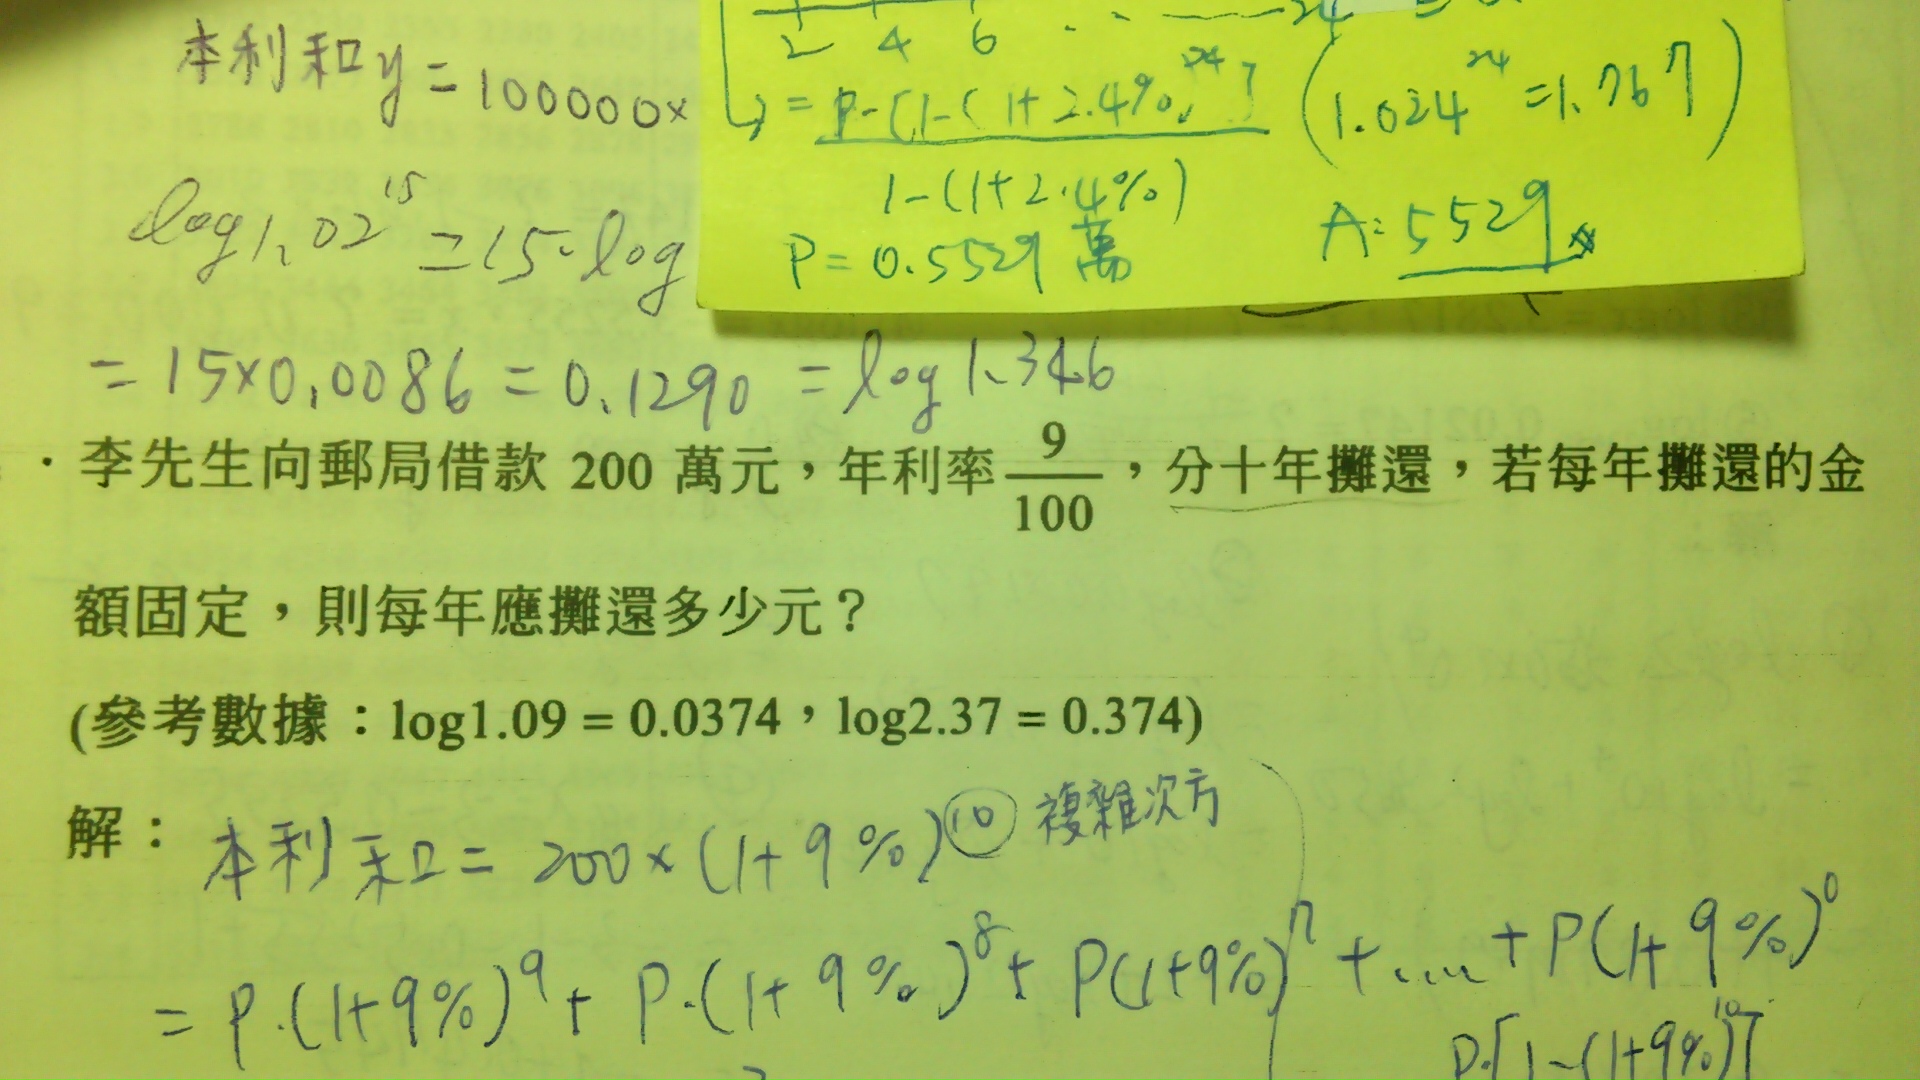 本利和y=100000×
2 4 6 ...... 24
= P·[1-(1+2.4%)^24] (1.024^24 =1.767)
1-(1+2.4%)
P=0.5529萬 A:5529
log1.02^15 =15·log
=15×0.0086=0.1290=log1.346
李先生向郵局借款 200 萬元，年利率9/100，分十年攤還，若每年攤還的金
額固定，則每年應攤還多少元？
(參考數據：log1.09 = 0.0374，log2.37 = 0.374)
解：本利和=200×(1+9%)^10 複雜次方
=P·(1+9%)^9+P·(1+9%)^8+P(1+9%)^7+.....+P(1+9%)^0
P·[1-(1+9%)^10]